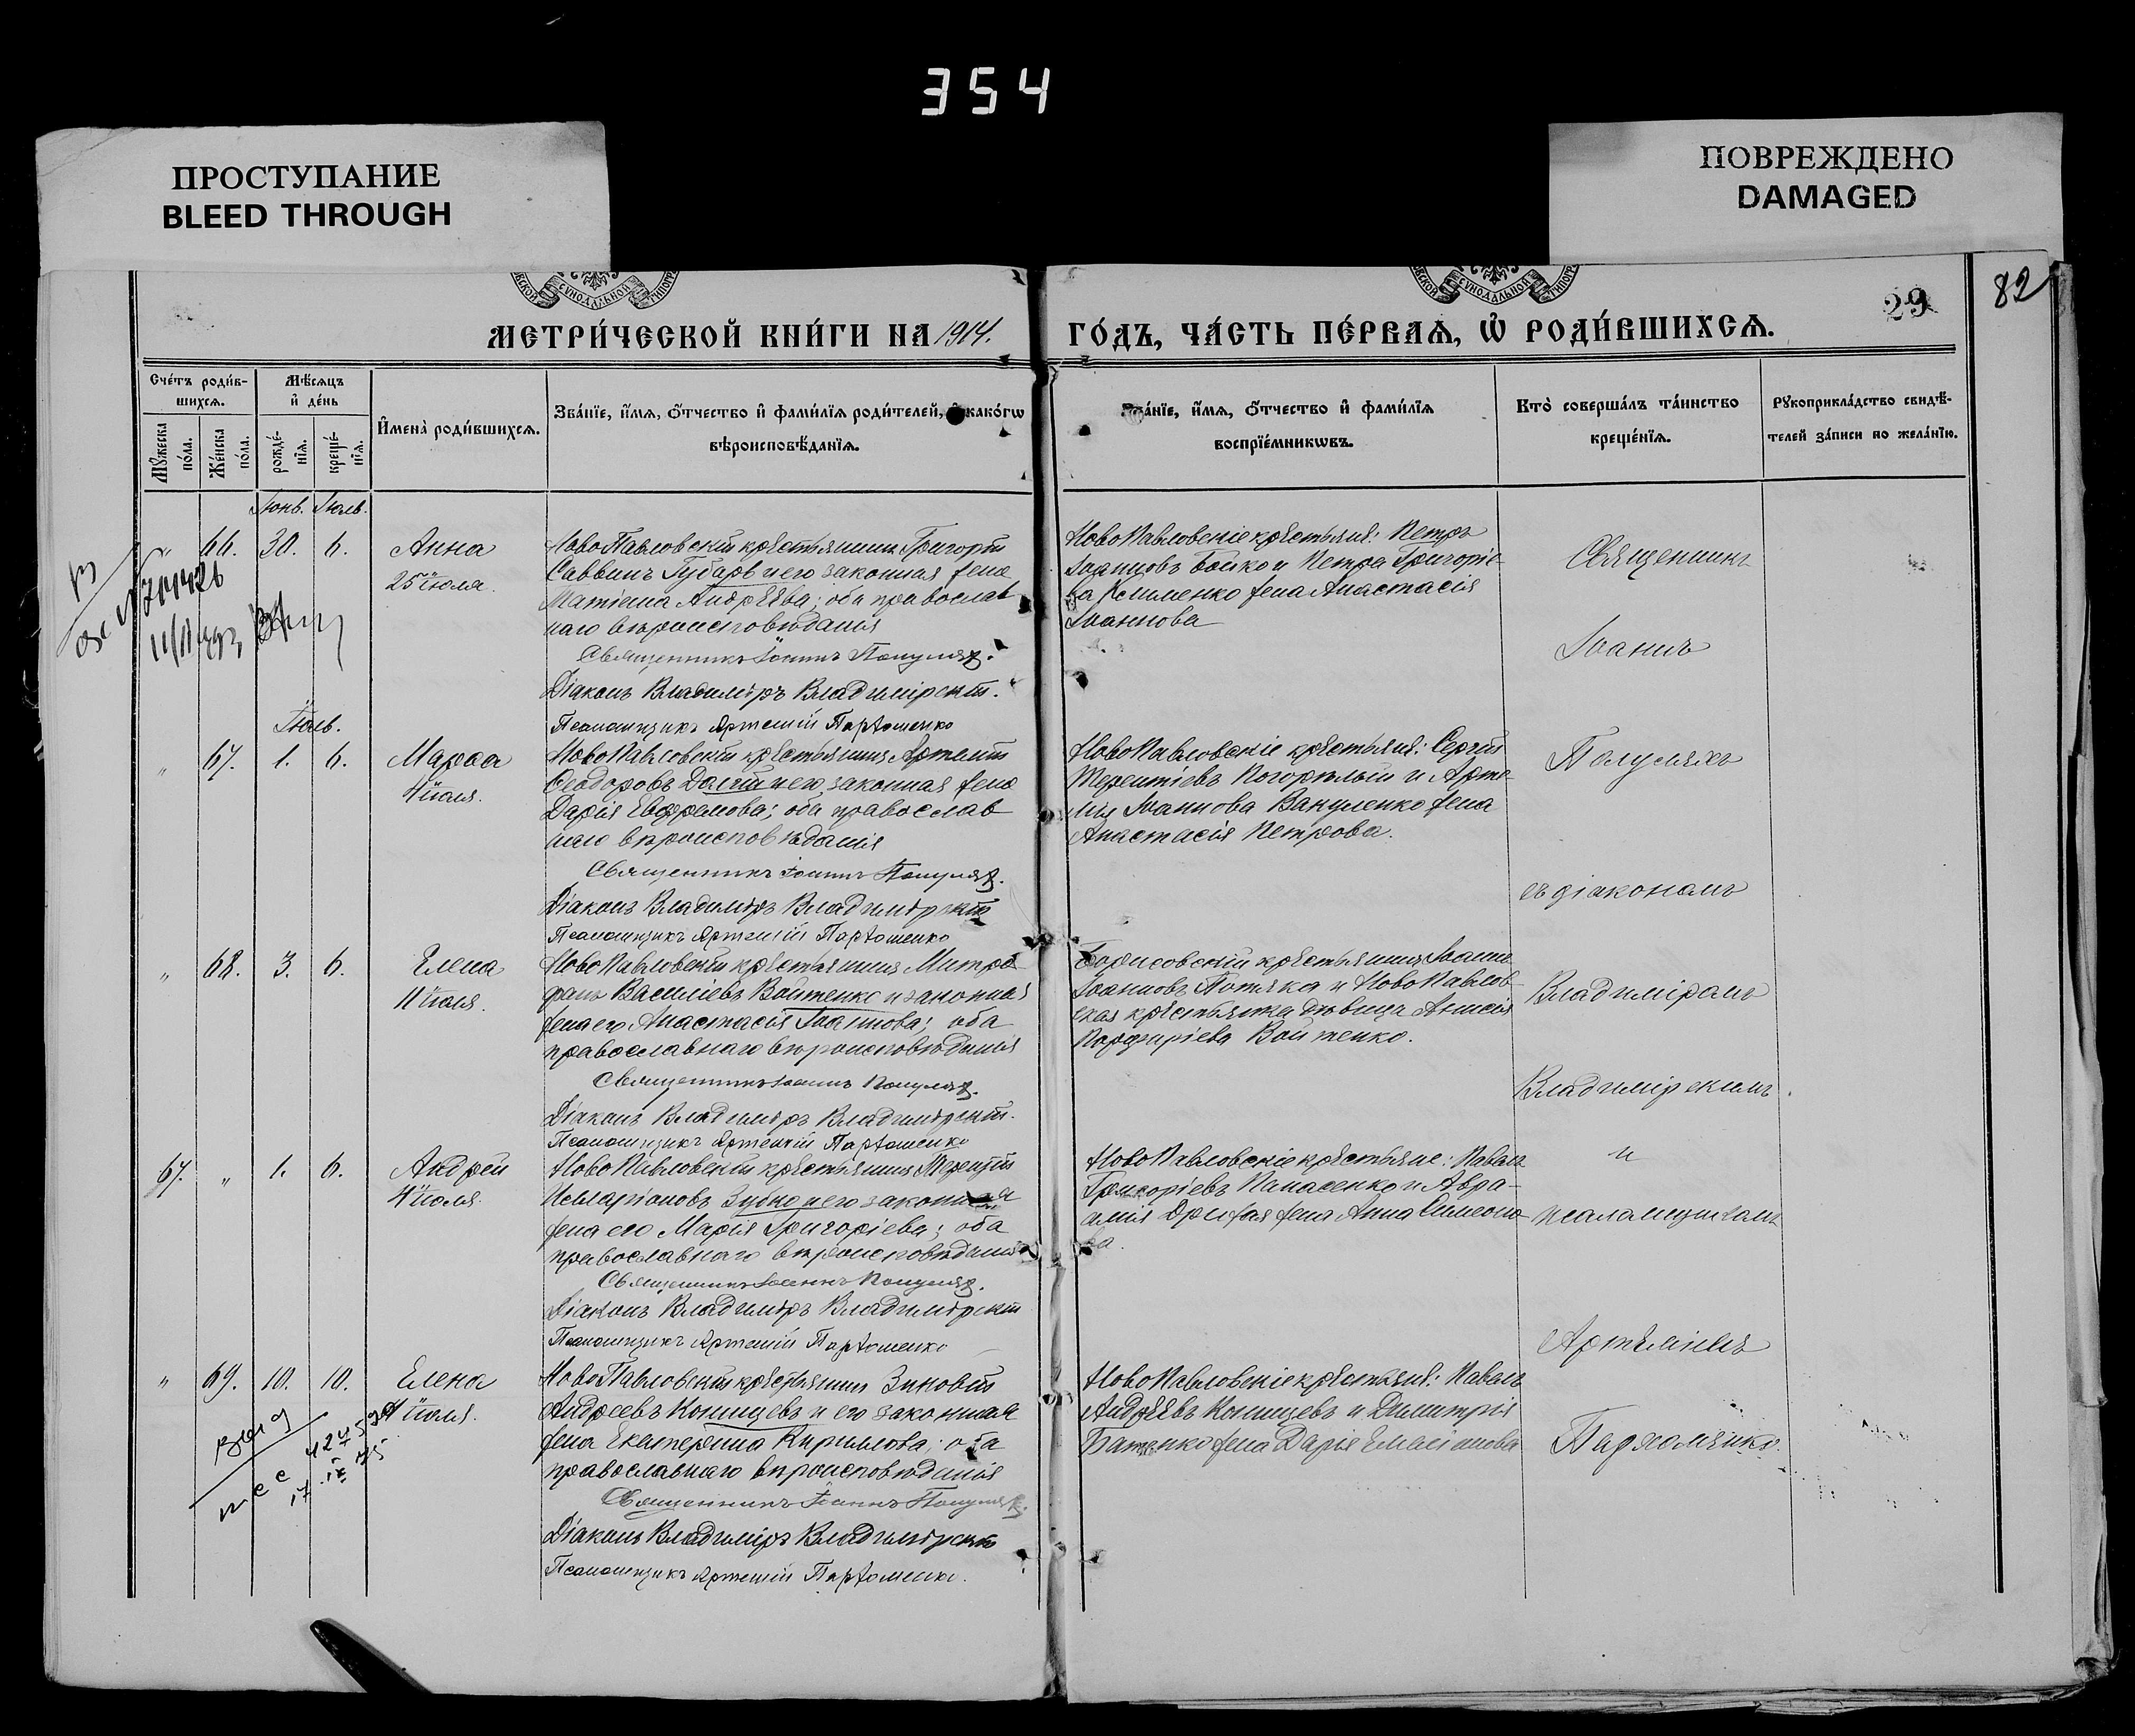 354
ПРОСТУПАНИЕ
BLEED THROUGH
ПОВРЕЖДЕНО
DAMAGED
82
29
МЕТРИ́ЧЕСКОЙ КНИ́ГИ НА 1914.
ГО́ДЪ, ЧА́СТЬ ПЕ́РВАѦ, Ѡ҆ РОДИ́ВШИХСѦ.
Сче́тъ роди́в-
шихсѧ.
Мꙋ́жеска по́ла.
Же́нска по́ла.
Мѣ́сѧцъ
и҆ де́нь
рожде́-нїѧ.
креще́-нїѧ.
И҆мена̀ роди́вшихсѧ.
Зва́нїе, и҆́мѧ, о҆́тчество и҆ фами́лїѧ роди́телей, и҆ како́гѡ
вѣроисповѣ́данїѧ.
Зва́нїе, и҆́мѧ, о҆́тчество и҆ фами́лїѧ
воспрїе́мникѡвъ.
Кто̀ соверша́лъ та́инство
креще́нїѧ.
Рꙋкоприкла́дство свидѣ́-
телей за́писи по жела́нїю.
Іюнь. Іюль.
" 66. 30. 6. Анна
25 іюля.
НовоПавловскій крестьянинъ Григорій
Саввинъ Губарь и его законная жена
Андреева; оба православ
наго вѣроисповѣданія
Священникъ Іоаннъ Полуляхъ.
Діаконъ Владиміръ Владимірскій.
Псаломщикъ Артемій Пархоменко
НовоПавловскіе крестьяне: Петръ
Іоанновъ Бойко и Петра Григоріе-
ва Клименко жена Анастасія
Іоаннова
Іюль.
" 67. 1. 6. Марѳа
4 іюля.
НовоПавловскій крестьянинъ Артемій
Ѳеодоровъ Долгій и его законная жена
Дарія Евфремова; оба православ
наго вѣроисповѣданія
Священникъ Іоаннъ Полуляхъ.
Діаконъ Владиміръ Владимірскій
Псаломщикъ Артемій Пархоменко
НовоПавловскіе крестьяне: Сергій
Терентіевъ Погорѣлый и Арте-
мія Іоаннова Вакуленко жена
Анастасія Петрова.
" 68. 3. 6. Елена
11 іюля.
НовоПавловскій крестьянинъ Митро-
фанъ Василіевъ Войтенко и законная
жена его Анастасія Іоаннова; оба
православнаго вѣроисповѣданія
Священникъ Іоаннъ Полуляхъ.
Діаконъ Владиміръ Владимірскій.
Псаломщикъ Артемій Пархоменко
Борисовскій крестьянинъ Іоаннъ
Іоанновъ и НовоПавлов-
ская крестьянка дѣвица Анисія
Порфиріева Войтенко.
67. " 1. 6. Андрей
4 іюля.
НовоПавловскій крестьянинъ Терентій
Илларіоновъ Зубко и его законная
жена его Марія Григоріева; оба
православнаго вѣроисповѣданія
Священникъ Іоаннъ Полуляхъ.
Діаконъ Владиміръ Владимірскій
Псаломщикъ Артемій Пархоменко
НовоПавловскіе крестьяне: Павелъ
Григоріевъ Панасенко и Авра-
амія жена Анна Симеоно-
ва.
" 69. 10. 10. Елена
іюля.
НовоПавловскій крестьянинъ Зиновій
Андреевъ Конищевъ и его законная
жена Екатерина Кириллова; оба
православнаго вѣроисповѣданія
Священникъ Іоаннъ Полуляхъ.
Діаконъ Владиміръ Владимірскій
Псаломщикъ Артемій Пархоменко.
НовоПавловскіе крестьяне: Павелъ
Андреевъ Конищевъ и Димитрія
жена Дарія
Священникъ
Іоаннъ
Полуляхъ
съ діакономъ
Владиміромъ
Владимірскимъ
и
псаломщикомъ
Артеміемъ
Пархоменко.